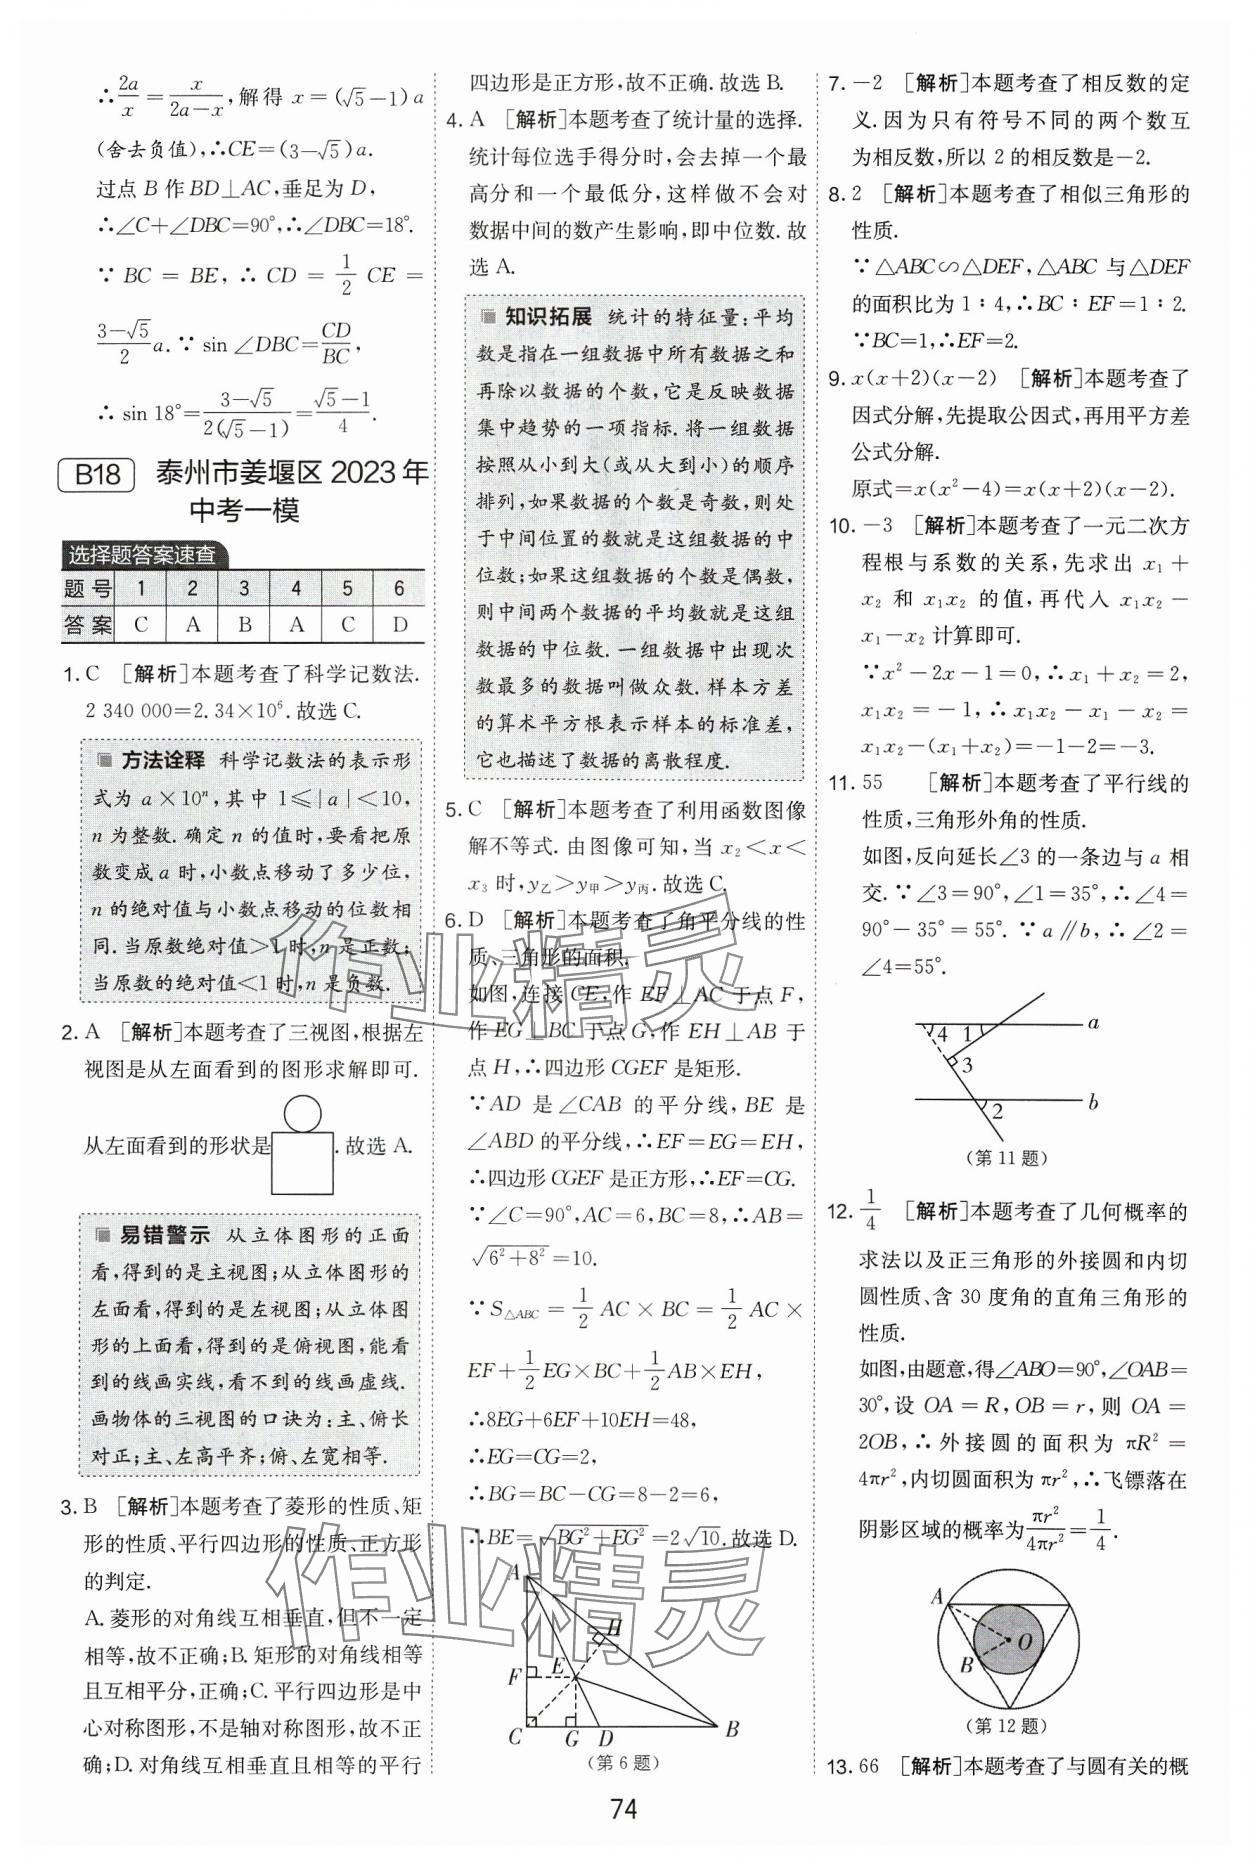 ∴2a/x=x/(2a-x),解得 x=(√5-1)a
(舍去负值),∴CE=(3-√5)a.
过点 B 作 BD⊥AC,垂足为 D,
∴∠C+∠DBC=90°,∴∠DBC=18°.
∵ BC = BE, ∴ CD = 1/2 CE =
(3-√5)/2 a. ∵ sin ∠DBC=CD/BC,
∴ sin 18°=(3-√5)/(2(√5-1))=(√5-1)/4.
B18 泰州市姜堰区 2023 年
中考一模
选择题答案速查
题号 1 2 3 4 5 6
答案 C A B A C D
1. C [解析]本题考查了科学记数法.
2 340 000=2.34×10⁶.故选 C.
方法诠释 科学记数法的表示形
式为 a×10ⁿ,其中 1≤|a|<10,
n 为整数.确定 n 的值时,要看把原
数变成 a 时,小数点移动了多少位,
n 的绝对值与小数点移动的位数相
同.当原数绝对值>1时,n 是正数;
当原数的绝对值<1时,n 是负数.
2. A [解析]本题考查了三视图,根据左
视图是从左面看到的图形求解即可.
从左面看到的形状是.故选 A.
易错警示 从立体图形的正面
看,得到的是主视图;从立体图形的
左面看,得到的是左视图;从立体图
形的上面看,得到的是俯视图,能看
到的线画实线,看不到的线画虚线.
画物体的三视图的口诀为:主、俯长
对正;主、左高平齐;俯、左宽相等.
3. B [解析]本题考查了菱形的性质、矩
形的性质、平行四边形的性质、正方形
的判定.
A.菱形的对角线互相垂直,但不一定
相等,故不正确;B.矩形的对角线相等
且互相平分,正确;C.平行四边形是中
心对称图形,不是轴对称图形,故不正
确;D.对角线互相垂直且相等的平行
四边形是正方形,故不正确.故选 B.
4. A [解析]本题考查了统计量的选择.
统计每位选手得分时,会去掉一个最
高分和一个最低分,这样做不会对
数据中间的数产生影响,即中位数.故
选 A.
知识拓展 统计的特征量:平均
数是指在一组数据中所有数据之和
再除以数据的个数,它是反映数据
集中趋势的一项指标.将一组数据
按照从小到大(或从大到小)的顺序
排列,如果数据的个数是奇数,则处
于中间位置的数就是这组数据的中
位数;如果这组数据的个数是偶数,
则中间两个数据的平均数就是这组
数据的中位数.一组数据中出现次
数最多的数据叫做众数.样本方差
的算术平方根表示样本的标准差,
它也描述了数据的离散程度.
5. C [解析]本题考查了利用函数图像
解不等式.由图像可知,当 x₂<x<
x₃ 时,y乙>y甲>y丙.故选 C.
6. D [解析]本题考查了角平分线的性
质、三角形的面积.
如图,连接 CE,作 EF⊥AC 于点 F,
作 EG⊥BC 于点 G,作 EH⊥AB 于
点 H,∴四边形 CGEF 是矩形.
∵AD 是∠CAB 的平分线,BE 是
∠ABD 的平分线,∴EF=EG=EH,
∴四边形 CGEF 是正方形,∴EF=CG.
∵∠C=90°,AC=6,BC=8,∴AB=
√(6²+8²)=10.
∵S△ABC = 1/2 AC×BC = 1/2 AC×
EF+1/2 EG×BC+1/2 AB×EH,
∴8EG+6EF+10EH=48,
∴EG=CG=2,
∴BG=BC-CG=8-2=6,
∴BE=√(BG²+EG²)=2√10.故选 D.
A
H
F E
C G D B
(第 6 题)
7. -2 [解析]本题考查了相反数的定
义.因为只有符号不同的两个数互
为相反数,所以 2 的相反数是-2.
8. 2 [解析]本题考查了相似三角形的
性质.
∵△ABC∽△DEF,△ABC 与△DEF
的面积比为 1∶4,∴BC∶EF=1∶2.
∵BC=1,∴EF=2.
9. x(x+2)(x-2) [解析]本题考查了
因式分解,先提取公因式,再用平方差
公式分解.
原式=x(x²-4)=x(x+2)(x-2).
10. -3 [解析]本题考查了一元二次方
程根与系数的关系,先求出 x₁+
x₂ 和 x₁x₂ 的值,再代入 x₁x₂-
x₁-x₂ 计算即可.
∵x²-2x-1=0,∴x₁+x₂=2,
x₁x₂=-1,∴x₁x₂-x₁-x₂=
x₁x₂-(x₁+x₂)=-1-2=-3.
11. 55 [解析]本题考查了平行线的
性质,三角形外角的性质.
如图,反向延长∠3 的一条边与 a 相
交.∵∠3=90°,∠1=35°,∴∠4=
90°-35°=55°.∵a∥b,∴∠2=
∠4=55°.
4 1 a
3
2 b
(第 11 题)
12. 1/4 [解析]本题考查了几何概率的
求法以及正三角形的外接圆和内切
圆性质、含 30 度角的直角三角形的
性质.
如图,由题意,得∠ABO=90°,∠OAB=
30°,设 OA=R,OB=r,则 OA=
2OB,∴外接圆的面积为 πR²=
4πr²,内切圆面积为 πr²,∴飞镖落在
阴影区域的概率为πr²/4πr²=1/4.
A
O
B
(第 12 题)
13. 66 [解析]本题考查了与圆有关的概
74
作业精灵
作业精灵